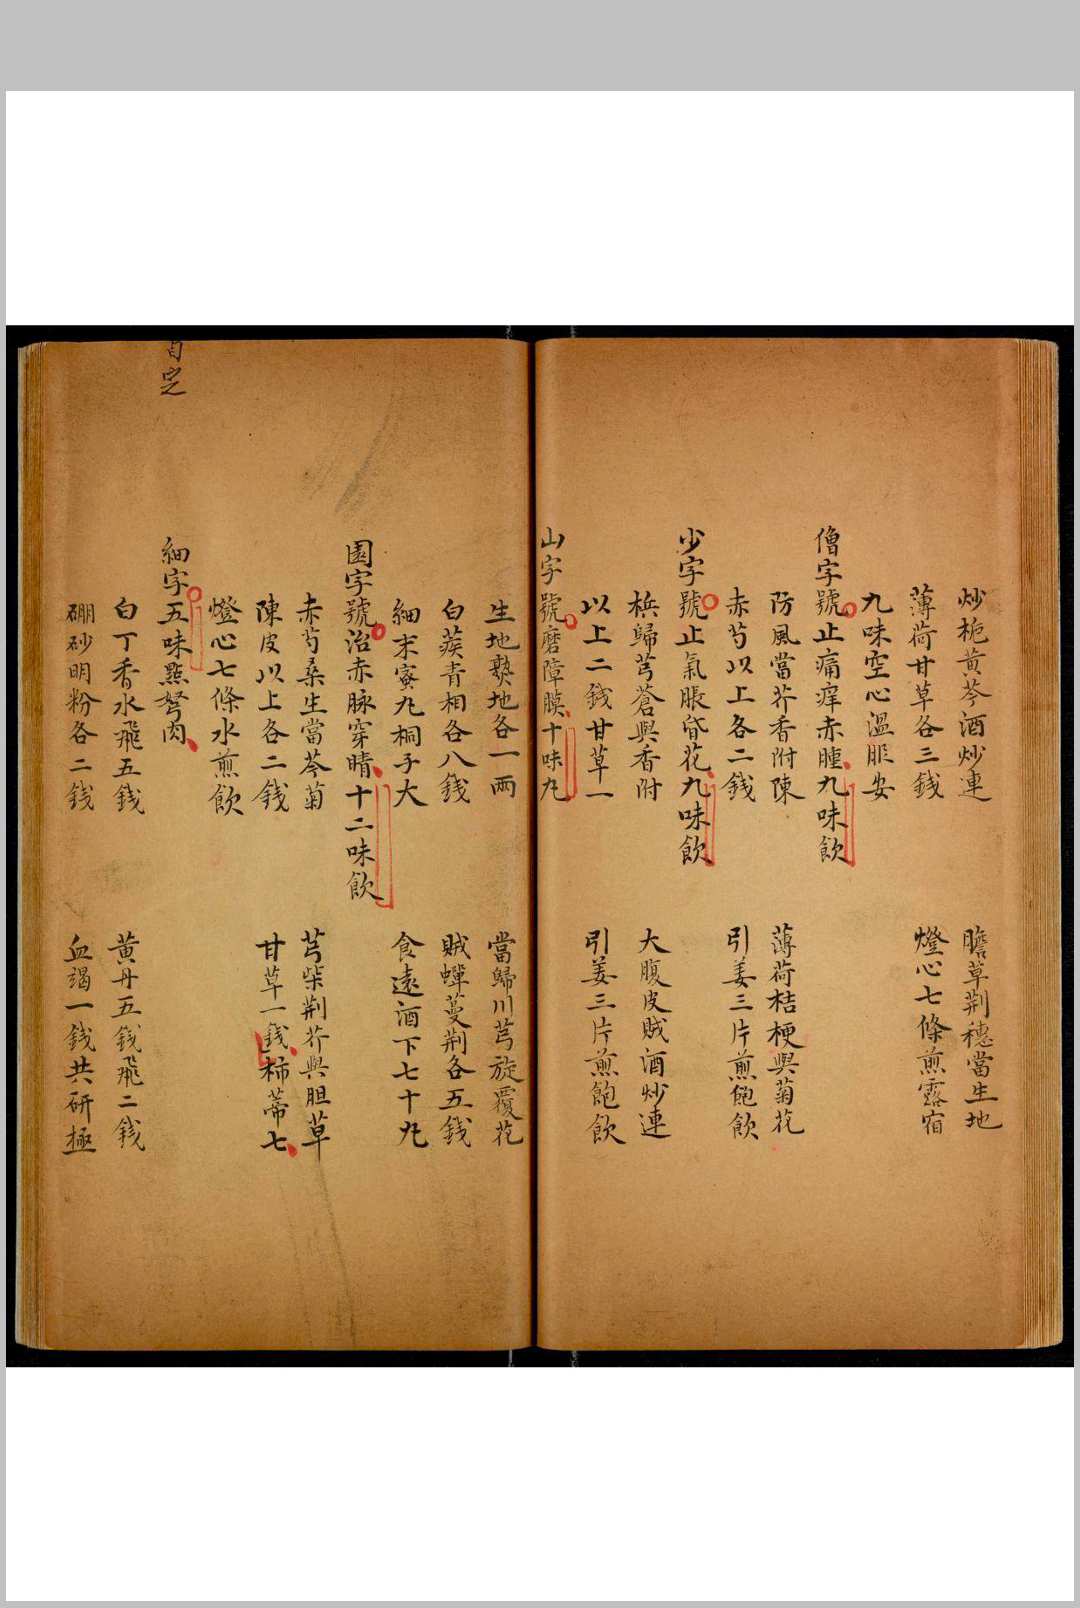 炒梔黃芩酒炒連　膽草荆穗當生地
薄荷甘草各三錢　燈心七條煎露宿
九味空心溫服安
僧字號止痛痒赤腫九味飲
防風當芥香附陳　薄荷桔梗與菊花
赤芍以上各二錢　引姜三片煎飽飲
少字號止氣脹昏花九味飲
梹歸芎蒼與香附　大腹皮賊酒炒連
以上二錢甘草一　引姜三片煎飽飲
山字號磨障膜十味丸
生地熟地各一兩　當歸川芎旋覆花
白蒺青相各八錢　賊蟬蔓荆各五錢
細末蜜丸桐子大　食遠酒下七十丸
園字號治赤脉穿睛十二味飲
赤芍桑生當芩菊　芎柴荆芥與胆草
陳皮以上各二錢　甘草一錢柿蒂七
燈心七條水煎飲
細字五味點弩肉
白丁香水飛五錢　黃丹五錢飛二錢
硼砂明粉各二錢　血竭一錢共研極